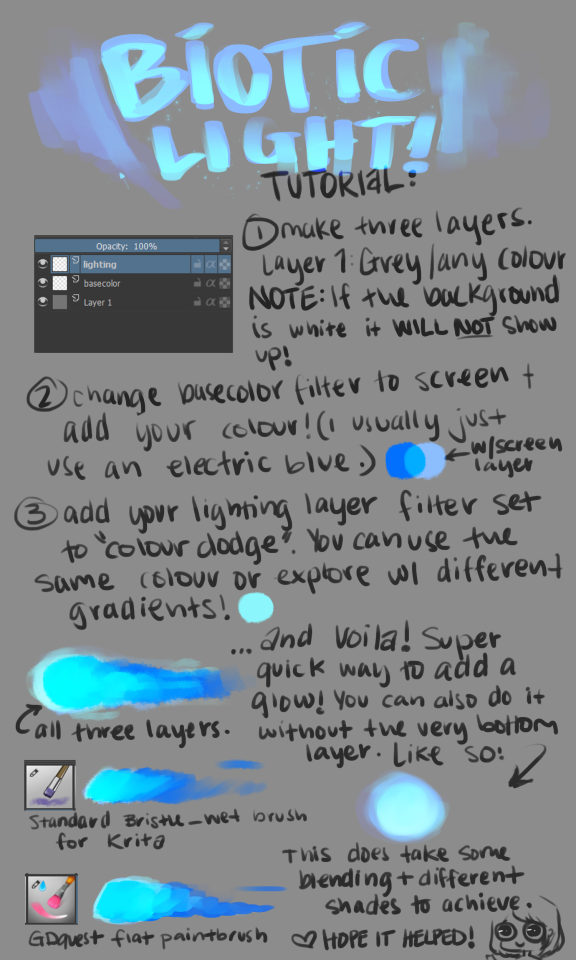 BIOTIC
LIGHT!
TUTORIAL:
Opacity: 100%
lighting
basecolor
Layer 1
① make three layers.
Layer 1: Grey/any colour
NOTE: If the background
is white it WILL NOT show
up!
② change basecolor filter to screen +
add your colour! (i usually just
use an electric blue.)
w/screen
layer
③ add your lighting layer filter set
to "colour dodge". You can use the
same colour or explore w/ different
gradients!
all three layers.
...and Voila! Super
quick way to add a
glow! You can also do it
without the very bottom
layer. Like so:
Standard Bristle_wet brush
for Krita
This does take some
blending + different
shades to achieve.
GDquest flat paintbrush
♡ HOPE IT HELPED!